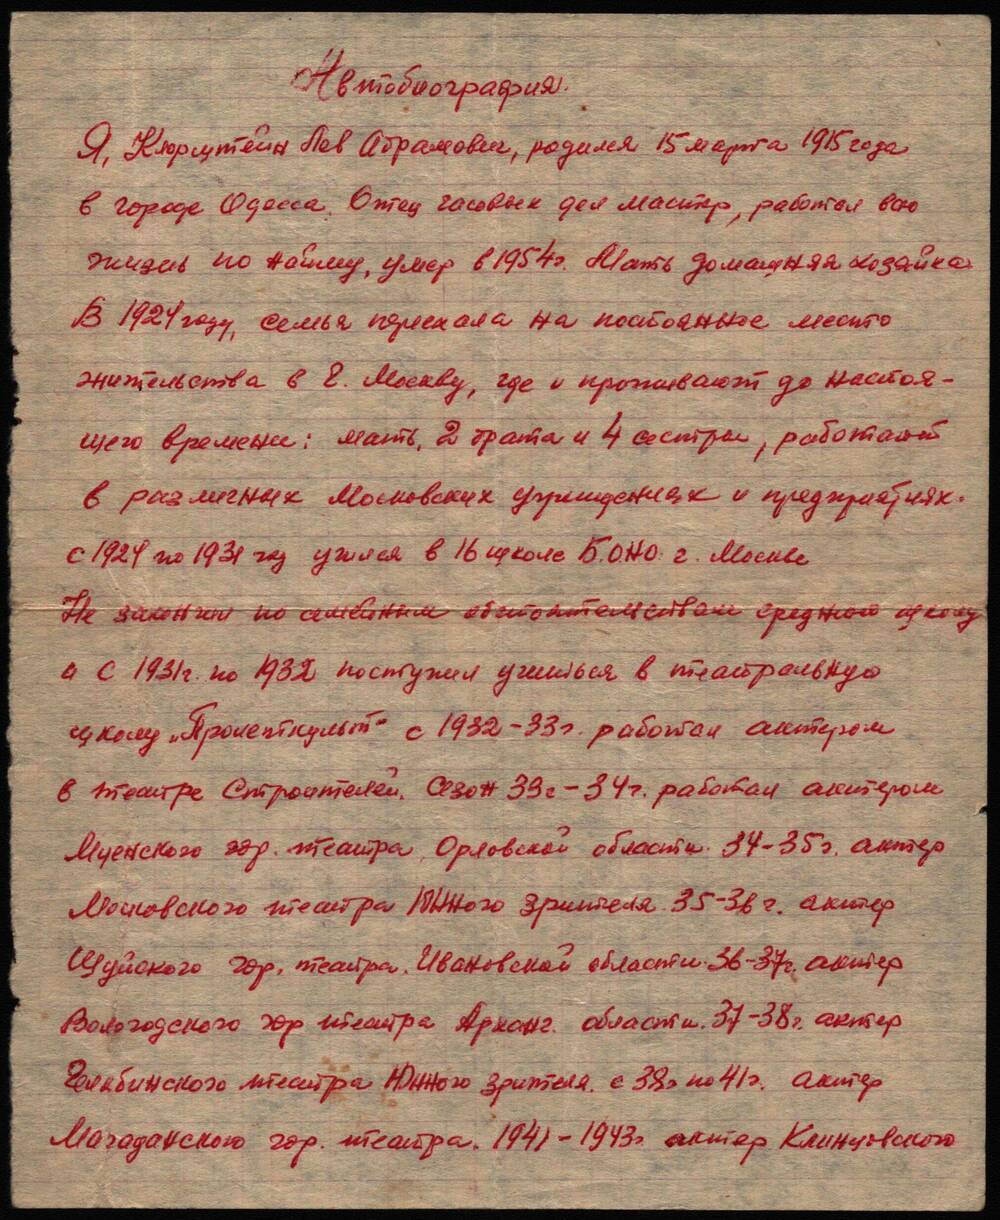 Автобиография.
Я, Клюрштейн Лев Абрамович, родился 15 марта 1915 года
в городе Одесса. Отец часовых дел мастер, работал всю
жизнь по найму, умер в 1954г. Мать домашняя хозяйка.
В 1924 году, семья переехала на постоянное место
жительства в г. Москву, где и проживают до настоя-
щего времени: мать, 2 брата и 4 сестры, работают
в различных Московских учреждениях и предприятиях.
с 1924 по 1931 год учился в 16 школе Б.О.Н.О. г. Москвы
Не закончил по семейным обстоятельствам среднюю школу
и с 1931г. по 1932 поступил учиться в театральную
школу „Пролеткульт" с 1932-33г. работал актером
в театре Строителей. Сезон 33г-34г. работал актером
Мценского гор. театра, Орловской области. 34-35г. актер
Московского театра Юнного зрителя. 35-36г. актер
Шуйского гор. театра. Ивановской области. 36-37г. актер
Вологодского гор театра Арханг. области. 37-38г. актер
Челябинского театра Юнного зрителя. с 38г по 41г. актер
Магаданского гор. театра. 1941-1943г. актер Клинцовского